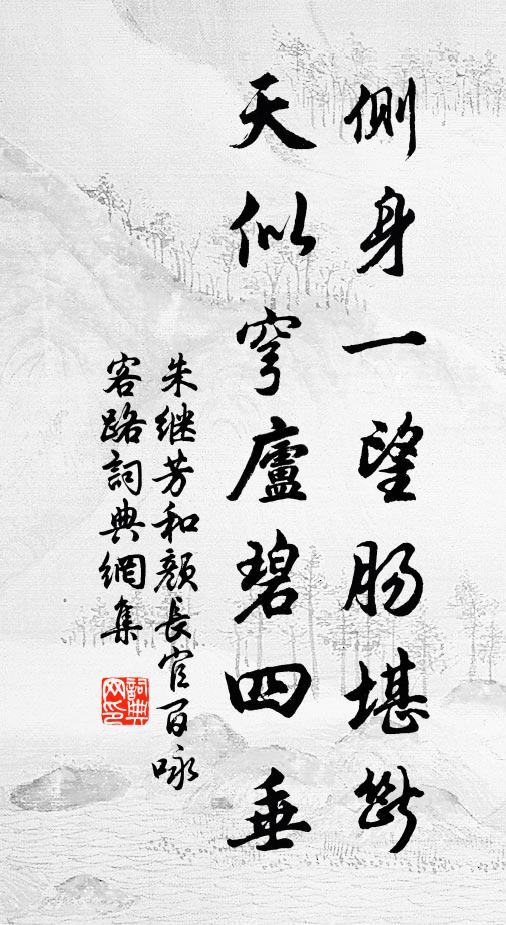 侧身一望肠堪断
天似穹庐碧四垂
朱继芳和颜长官百咏
客路詞典網集
詞典
网印